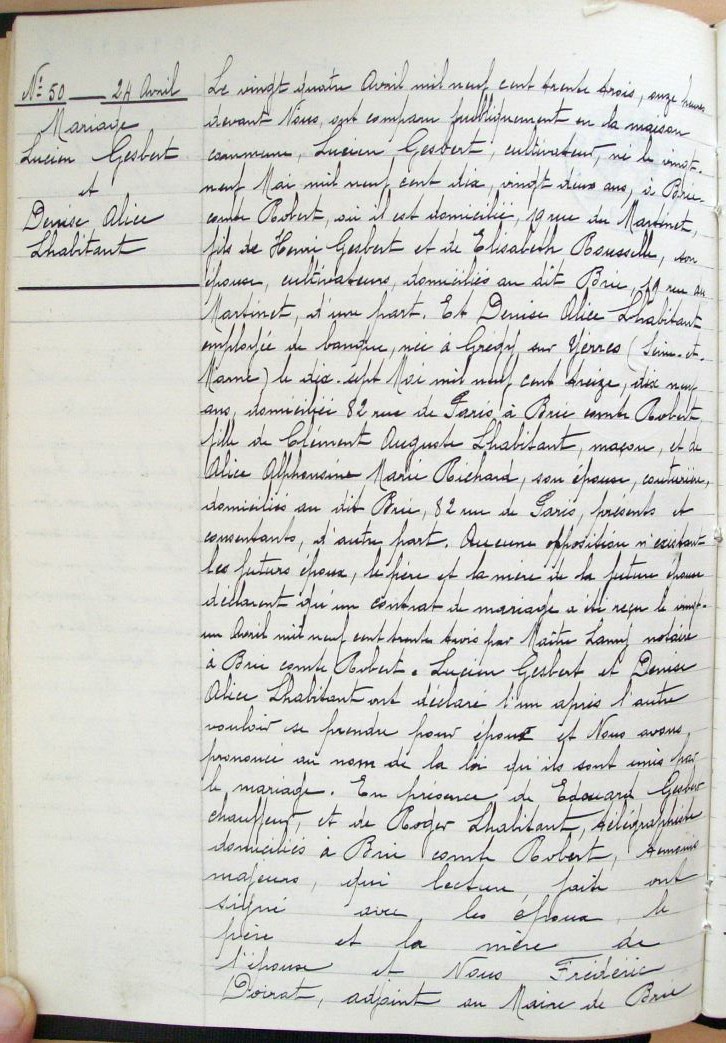 N° 50 — 24 Avril
Mariage
Lucien Gesbert
et
Denise Alice
Lhabitant
Le vingt quatre Avril mil neuf cent trente trois, onze heures
devant Nous, ont comparu publiquement en la maison
commune, Lucien Gesbert, cultivateur, né le vingt-
neuf Mai mil neuf cent dix, vingt deux ans, à Brie-
comte Robert, où il est domicilié, 19 rue du Martinet,
fils de Henri Gesbert et de Elisabeth Rousselle, son
épouse, cultivateurs, domiciliés au dit Brie, 19 rue du
Martinet, d'une part. Et Denise Alice Lhabitant
employée de banque, née à Gregy sur Yerres (Seine-et-
Marne) le dix-sept Mai mil neuf cent treize, dix neuf
ans, domiciliée 82 rue de Paris, à Brie comte Robert,
fille de Clément Auguste Lhabitant, maçon, et de
Alice Alphonsine Marie Richard, son épouse, couturière,
domiciliés au dit Brie, 82 rue de Paris, présents et
consentants, d'autre part. Aucune opposition n'existant
les futurs époux, le père et la mère de la future épouse
déclarent qu'un contrat de mariage a été reçu le vingt-
un Avril mil neuf cent trente trois par Maître notaire
à Brie comte Robert. Lucien Gesbert et Denise
Alice Lhabitant ont déclaré l'un après l'autre
vouloir se prendre pour époux et Nous avons
prononcé au nom de la loi qu'ils sont unis par
le mariage. En présence de Edouard Gesbert
chauffeur, et de Roger Lhabitant, télégraphiste
domiciliés à Brie comte Robert, témoins
majeurs, qui lecture faite ont
signé avec les époux, le
père et la mère de
l'épouse et Nous Frédéric
Doirat, adjoint au Maire de Brie